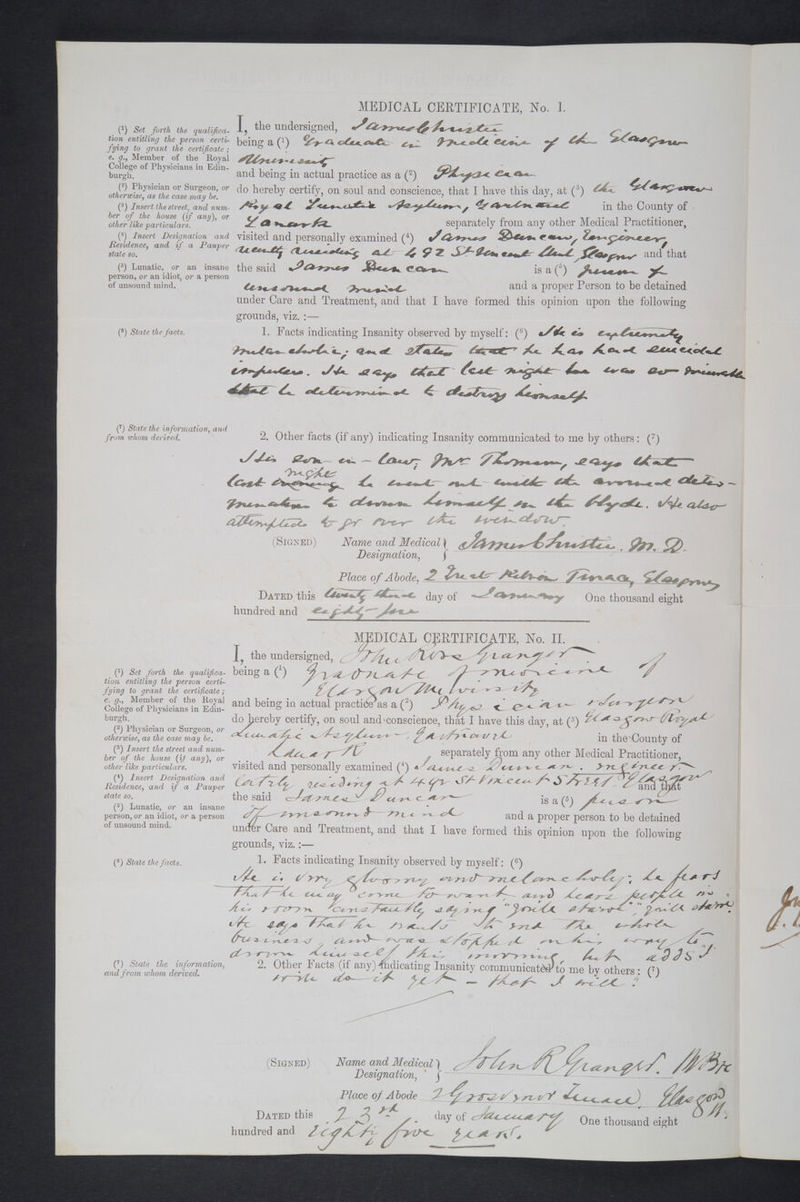 MEDICAL CERTIFICATE, No. I.
(¹) Set forth the qualifica-
tion entitling the person certi-
fying to grant the certificate;
e. g., Member of the Royal
College of Physicians in Edin-
burgh.
(²) Physician or Surgeon, or
otherwise, as the case may be.
(³) Insert the street, and num-
ber of the house (if any), or
other like particulars.
(⁴) Insert Designation and
Residence, and if a Pauper
state so.
(⁵) Lunatic, or an insane
person, or an idiot, or a person
of unsound mind.
I, the undersigned, James Christie
being a (¹) Graduate in Medicine of the Glasgow
University
and being in actual practice as a (²) Physician
do hereby certify, on soul and conscience, that I have this day, at (³) the Glasgow
Royal Lunatic Asylum, Gartnavel in the County of
Lanark separately from any other Medical Practitioner,
visited and personally examined (⁴) James Duncan, Engineer,
lately residing at 492 St Vincent Street Glasgow and that
the said James Duncan is a (⁵) person of
unsound mind and a proper Person to be detained
under Care and Treatment, and that I have formed this opinion upon the following
grounds, viz. :—
(⁶) State the facts.
1. Facts indicating Insanity observed by myself: (⁶) He is extremely
melancholic; and states that he has had suicidal
impulses. He says that last night he was so miserable
that he determined to destroy himself.
(⁷) State the information, and
from whom derived.
2. Other facts (if any) indicating Insanity communicated to me by others: (⁷)
His son-in-law, Mr Thomson, says that
last night he went out with the avowed deter-
mination to drown himself in the Clyde. He also
attempted to go over the window.
(SIGNED) Name and Medical Designation, James Christie. M. D.
Place of Abode, 2 Great Kelvin Terrace, Glasgow
DATED this twenty third day of January One thousand eight
hundred and eighty-five
MEDICAL CERTIFICATE, No. II.
(¹) Set forth the qualifica-
tion entitling the person certi-
fying to grant the certificate;
e. g., Member of the Royal
College of Physicians in Edin-
burgh.
(²) Physician or Surgeon, or
otherwise, as the case may be.
(³) Insert the street and num-
ber of the house (if any), or
other like particulars.
(⁴) Insert Designation and
Residence, and if a Pauper
state so.
(⁵) Lunatic, or an insane
person, or an idiot, or a person
of unsound mind.
I, the undersigned, John Ross Granger
being a (¹) Graduate of medicine of
Glasgow University
and being in actual practice as a (²) Physician & Surgeon
do hereby certify, on soul and conscience, that I have this day, at (³) Glasgow Royal
Lunatic Asylum - Gartnavel in the County of
Lanark separately from any other Medical Practitioner,
visited and personally examined (⁴) James Duncan. Engineer.
lately residing at 492 St Vincent Street Glasgow and that
the said James Duncan is a (⁵) person
of unsound mind and a proper person to be detained
under Care and Treatment, and that I have formed this opinion upon the following
grounds, viz. :—
(⁶) State the facts.
1. Facts indicating Insanity observed by myself: (⁶)
He is very gloomy and melancholy; he fears
that he may come to want and hears people in
his room constantly saying "you'll starve", "you'll starve".
He says that he wants to end the whole
business, and was stopped on his way to
drown himself this morning, but adds I
will do it yet - that I will!
(⁷) State the information,
and from whom derived.
2. Other Facts (if any) indicating Insanity communicated to me by others: (⁷)
(SIGNED) Name and Medical Designation, John R Granger. M.B.
Place of Abode 2 Grosvenor Terrace, Glasgow
DATED this 23rd day of January One thousand eight
hundred and Eighty five years.